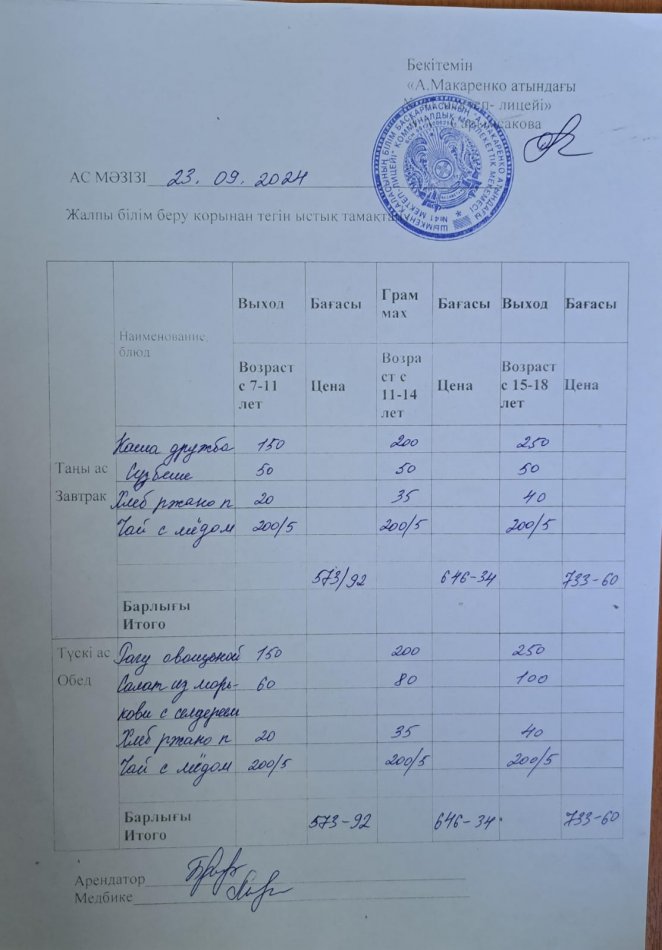 Бекітемін
«А.Макаренко атындағы
лицейі»
АС МӘЗІЗІ 23.09.2024
Жалпы білім беру қорынан тегін ыстық
Наименование блюд Выход Бағасы Грам мах Бағасы Выход Бағасы
Возраст с 7-11 лет Цена Возра ст с 11-14 лет Цена Возраст с 15-18 лет Цена
Каша дружба 150 200 250
Таңы ас Сүзбеше 50 50 50
Завтрак Хлеб ржано п 20 35 40
Чай с мёдом 200/5 200/5 200/5
573/92 646-34 733-60
Барлығы
Итого
Түскі ас Рагу овощной 150 200 250
Обед Салат из мор- 60 80 100
кови с селдереем
Хлеб ржано п 20 35 40
Чай с мёдом 200/5 200/5 200/5
Барлығы 573-92 646-34 733-60
Итого
Арендатор
Медбике